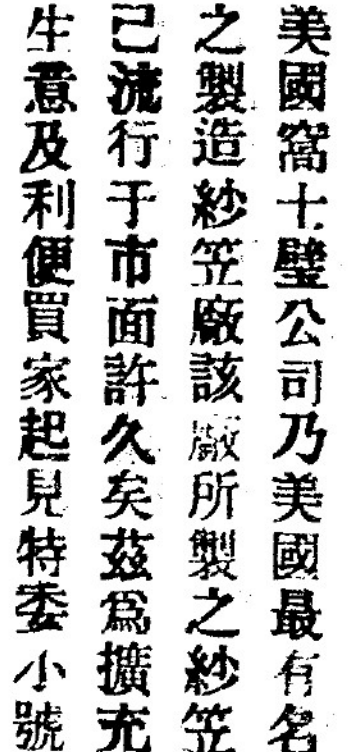 美國窩士璧公司乃美國最有名
之製造紗笠廠該廠所製之紗笠
己流行于市面許久矣茲爲擴充
生意及利便買家起見特委小號